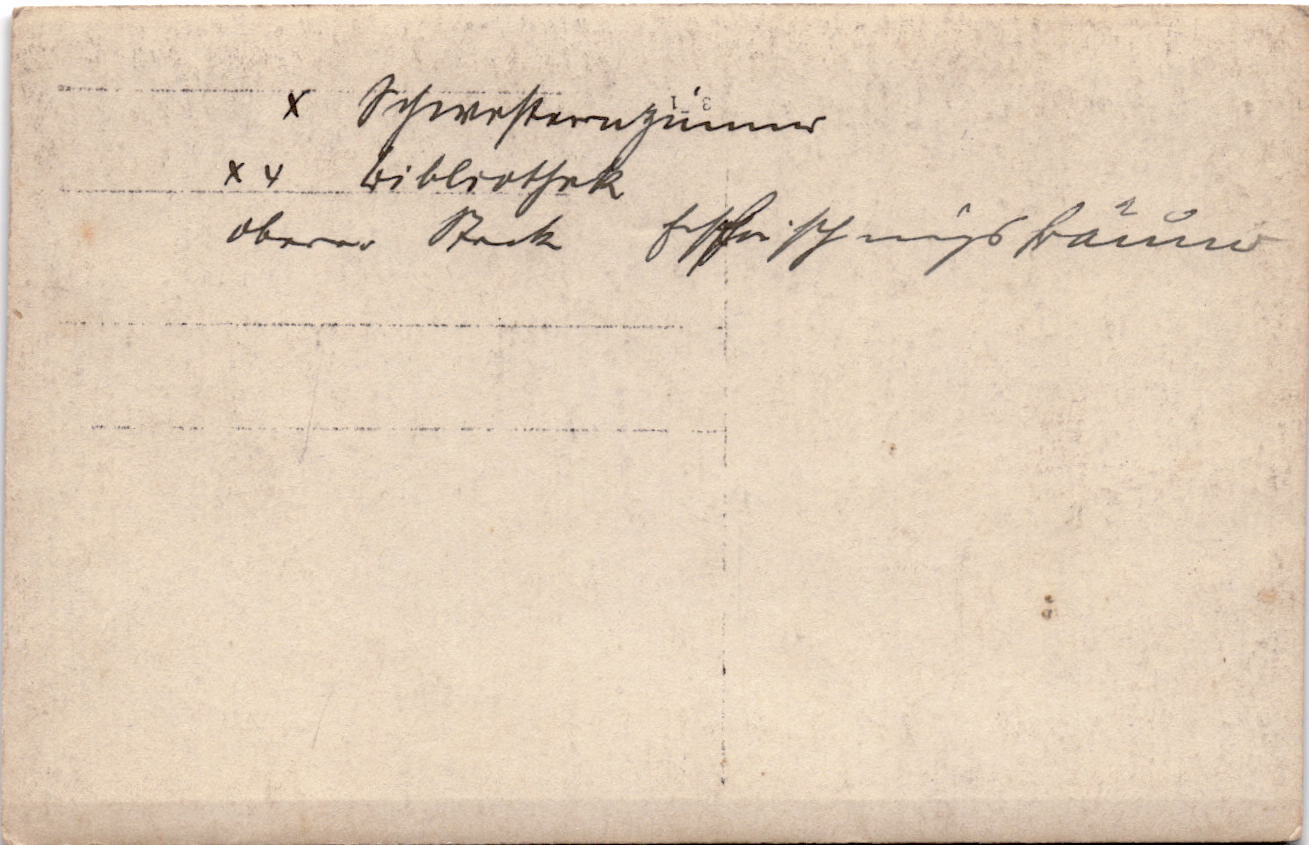 x Schwesternzimmer
x x Bibliothek
oberer Stock Erfrischungsräume